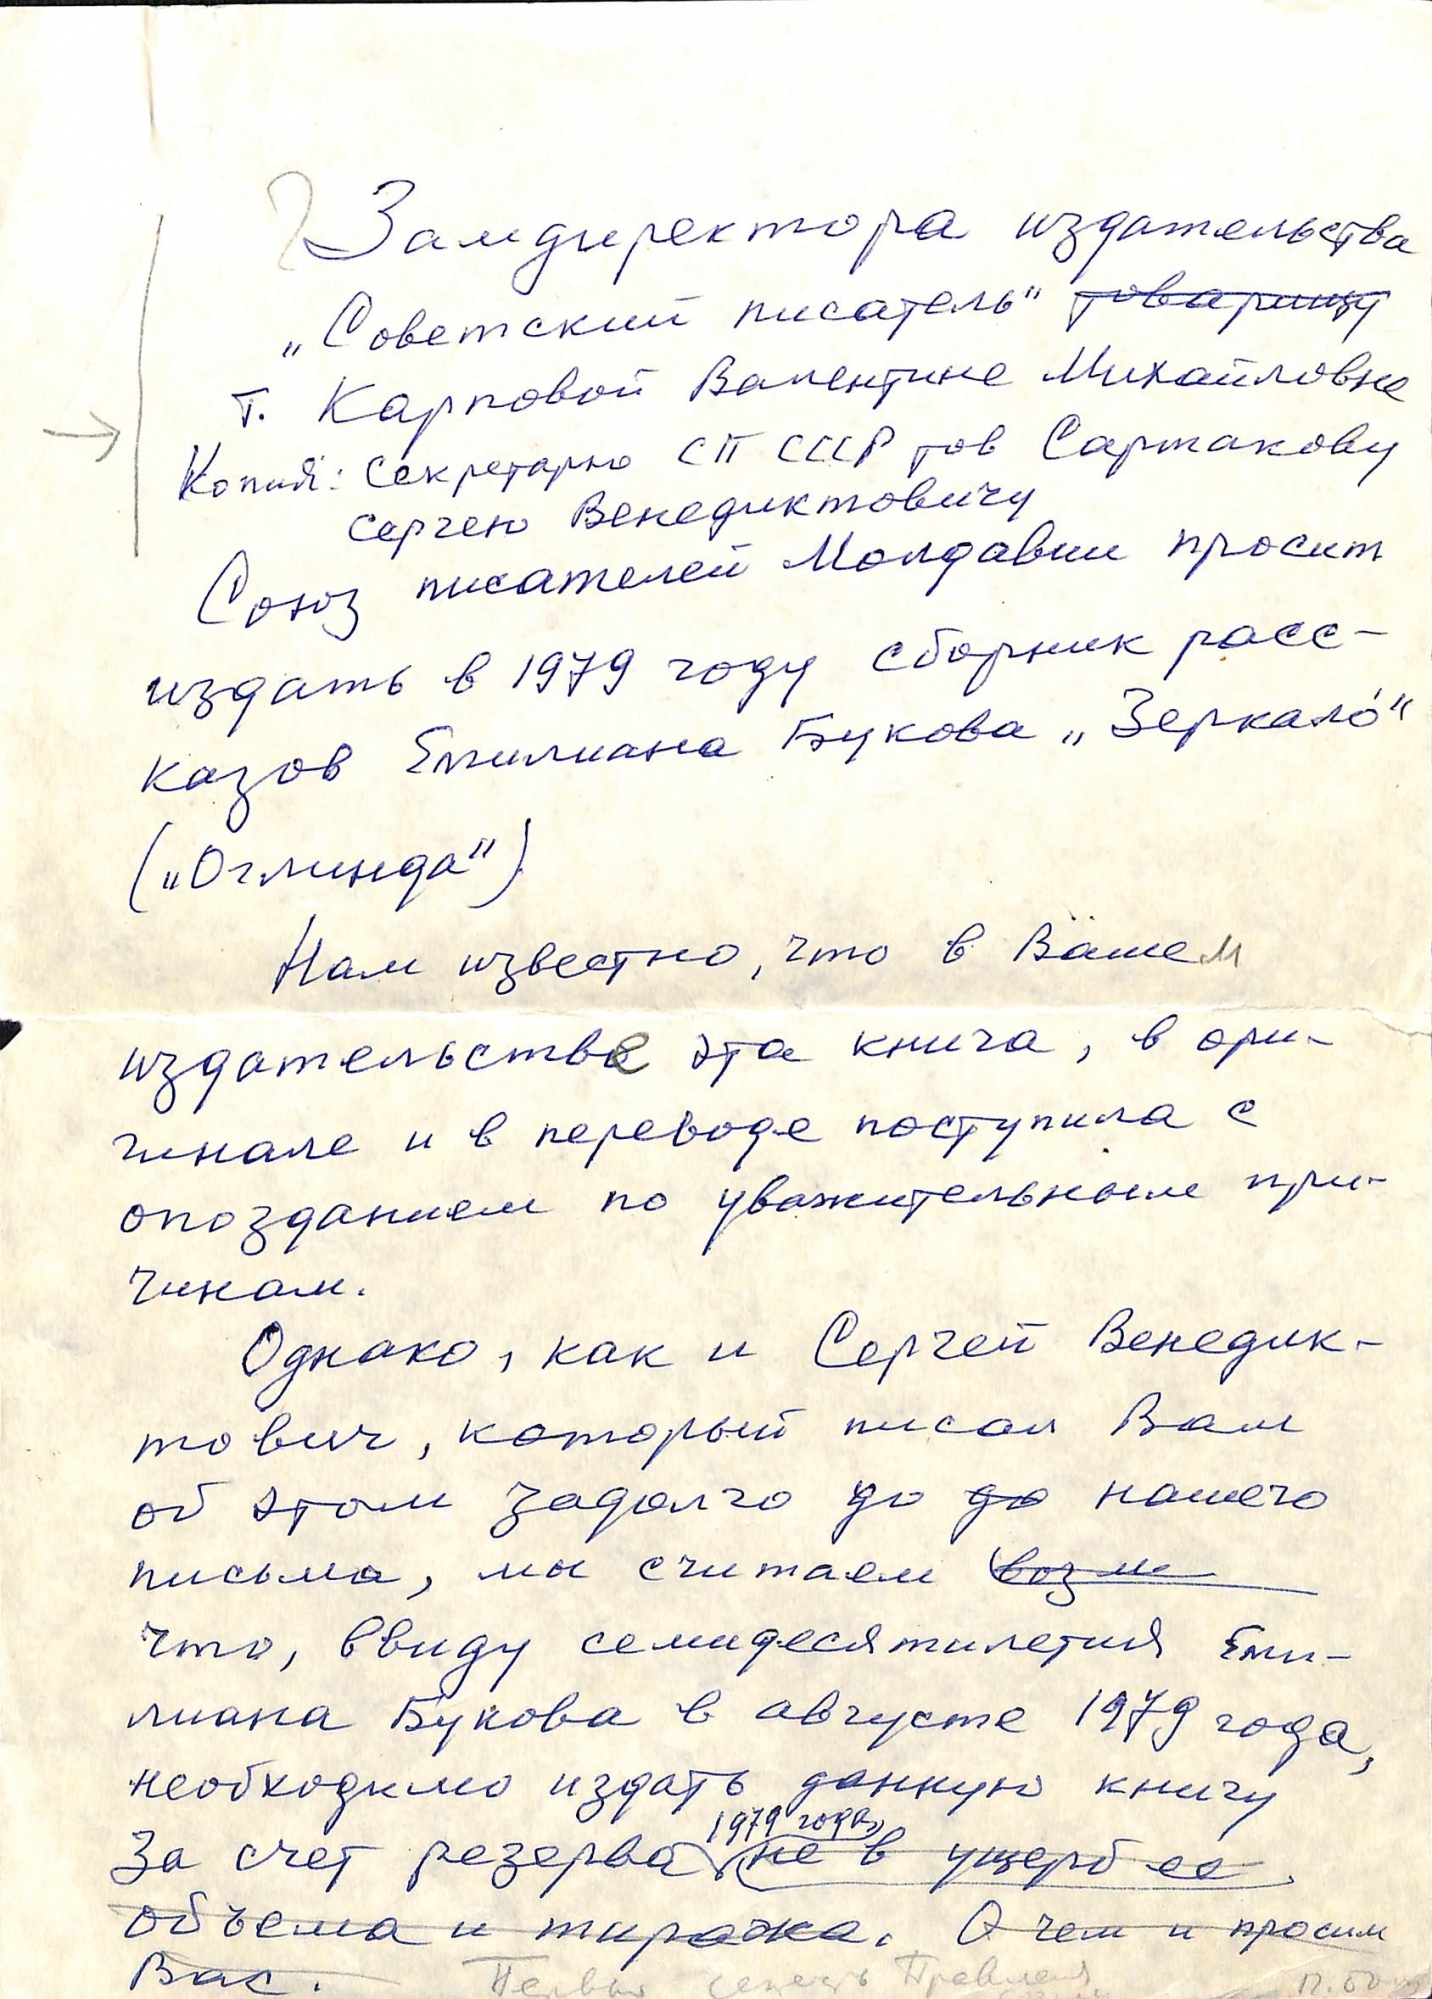 Замдиректора издательства
„Советский писатель" товарищу
т. Карповой Валентине Михайловне
Копия: секретарю СП СССР тов Сартакову
Сергею Венедиктовичу
Союз писателей Молдавии просит
издать в 1979 году сборник расс-
казов Емилиана Букова „Зеркало"
(„Оглинда")
Нам известно, что в Вашем
издательстве эта книга, в ори-
гинале и в переводе поступила с
опозданием по уважительным при-
чинам.
Однако, как и Сергей Венедик-
тович, который писал Вам
об этом задолго до до нашего
письма, мы считаем возм
что, ввиду семидесятилетия Еми-
лиана Букова в августе 1979 года,
необходимо издать данную книгу
1979 года,
За счет резерва не в ущерб ее
объема и тиража. О чем и просим
Вас. Первый секретарь Правления